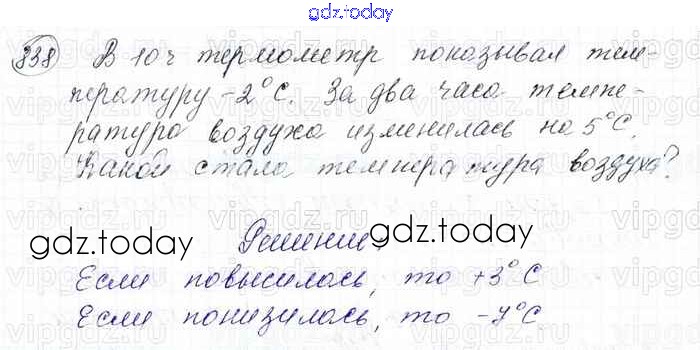 gdz.today
838 В 10 ч термометр показывал тем-
пературу -2°С. За два часа темпе-
ратура воздуха изменилась на 5°С.
Какой стала температура воздуха?
gdz.today Решение: gdz.today
Если повысилась, то +3°С
Если понизилась, то -7°С.